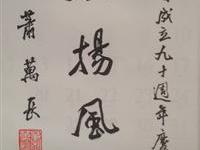 成立九十週年慶
揚風
蕭萬長